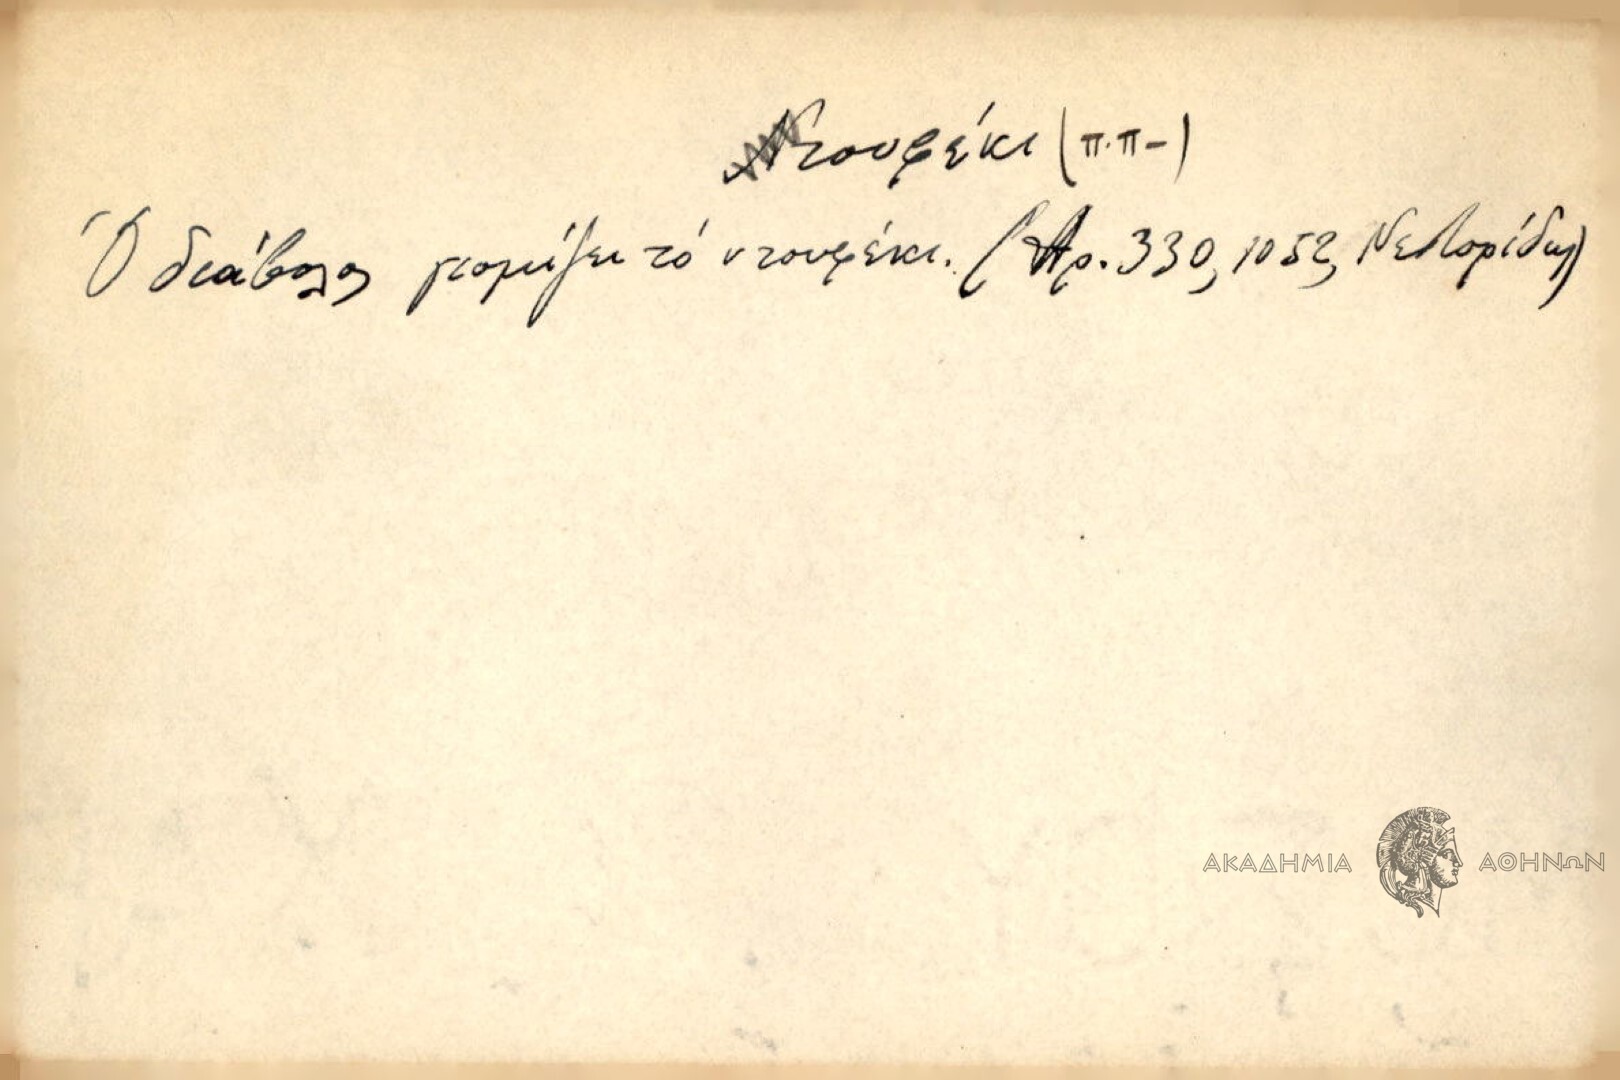 Ντουφέκι (π.π-)
Ὁ διάβολος γιομίζει τό ντουφέκι. (Αρ. 330, 1052, Νεστορίδης)
ΑΚΑΔΗΜΙΑ ΑΘΗΝΩΝ